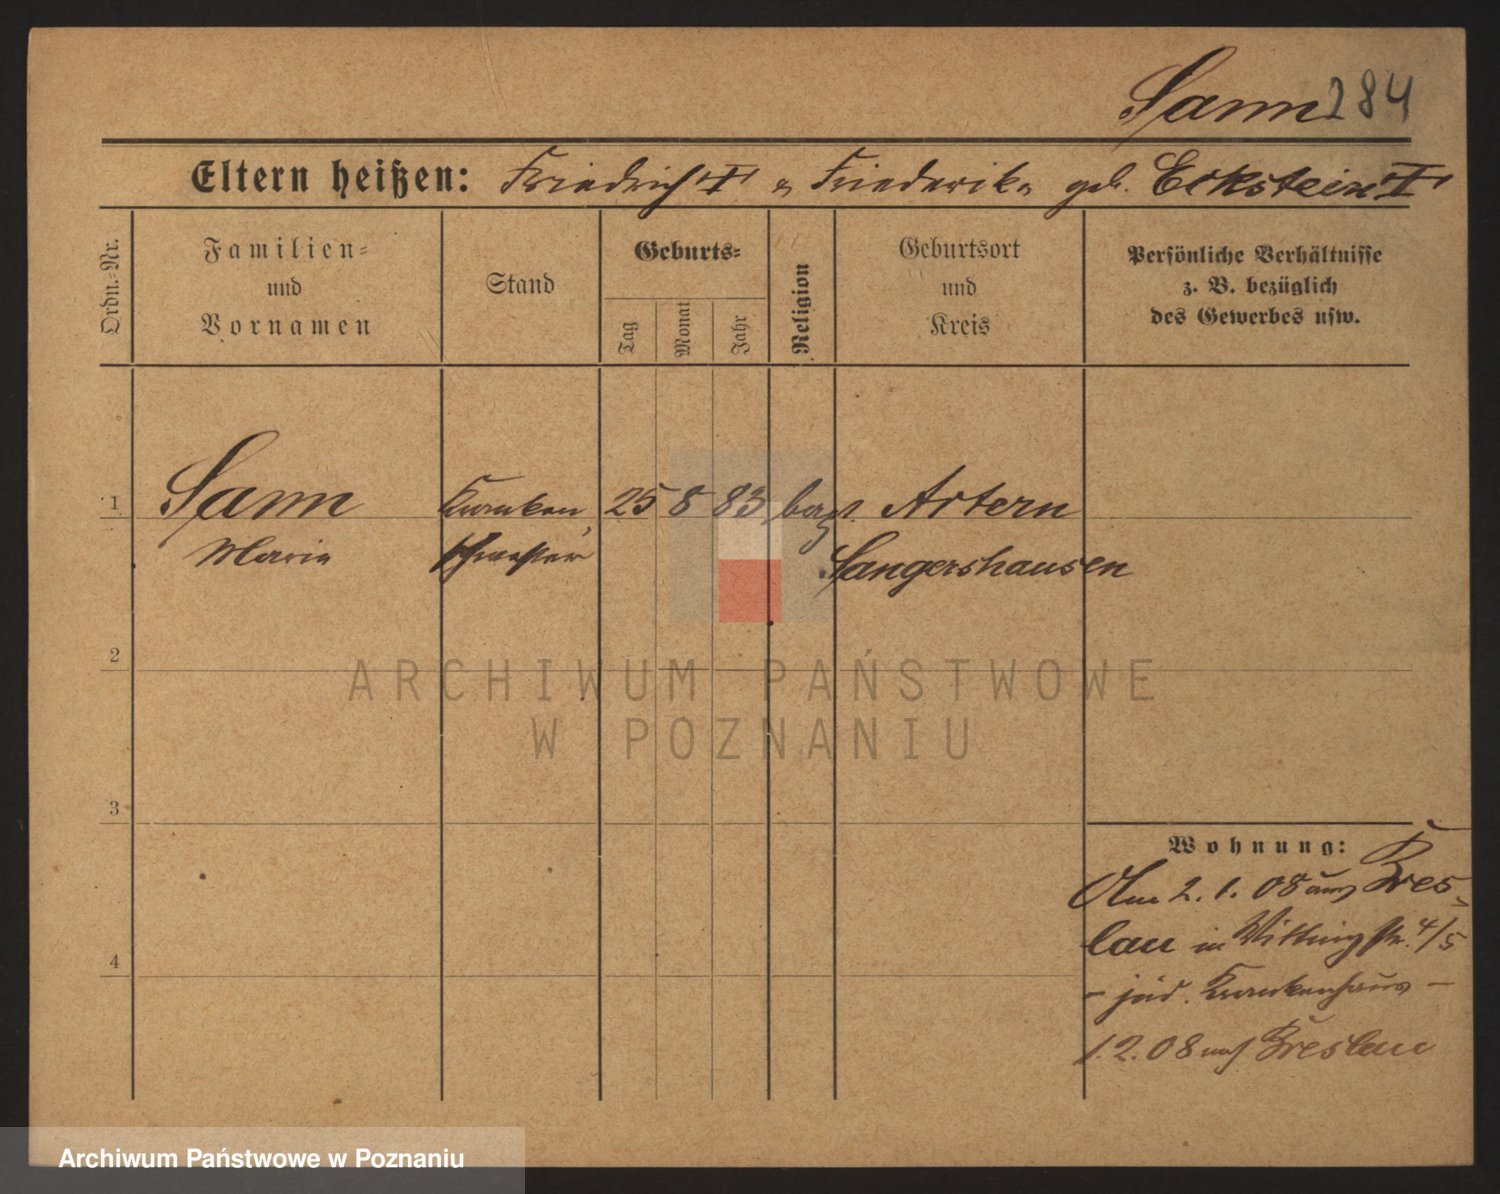 Sann 284
Eltern heißen: Friedrich † u Friederike geb. Eckstein †
Ordn.-Nr.
Familien-
und
Vornamen
Stand
Geburts-
Tag
Monat
Jahr
Religion
Geburtsort
und
Kreis
Persönliche Verhältnisse
z. B. bezüglich
des Gewerbes usw.
1 Sann Kranken 25 8 83 Artern
Marie schwester Sangershausen
2
3
4
Wohnung:
Am 2. 1. 08 aus Bres-
lau in str. 4/5
- jüd. Krankenhaus -
1. 2. 08 nach Breslau
ARCHIWUM PAŃSTWOWE
W POZNANIU
Archiwum Państwowe w Poznaniu